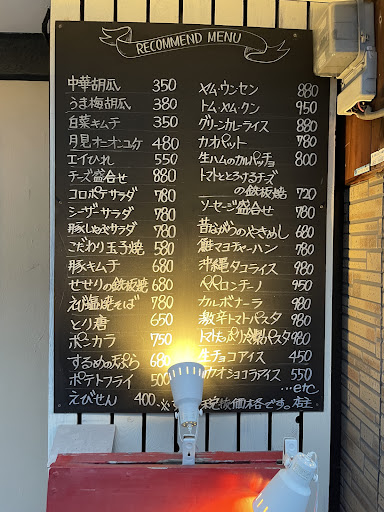 RECOMMEND MENU
中華胡瓜 350
うま梅胡瓜 380
白菜キムチ 350
月見オニオンユッケ 480
エイひれ 550
チーズ盛合せ 880
コロポテサラダ 780
シーザーサラダ 780
豚しゃぶサラダ 780
こだわり玉子焼 580
豚キムチ 680
せせりの鉄板焼 680
えび塩焼そば 780
とり唐 650
ポンカラ 750
するめの天ぷら
ポテトフライ 500
えびせん 400
ヤム・ウンセン 880
トム・ヤム・クン 950
グリーンカレーライス 880
カオパット 780
生ハムのカルパッチョ 800
トマトととろけるチーズ
の鉄板焼 720
ソーセージ盛合せ 780
昔ながらのやきめし 680
鮭マヨチャーハン 780
沖縄タコライス 980
ペペロンチーノ 950
カルボナーラ 980
激辛トマトパスタ 980
トマトたっぷり冷製パスタ 980
生チョコアイス 450
カカオショコラアイス 550
…etc
※ 税抜価格です。店主